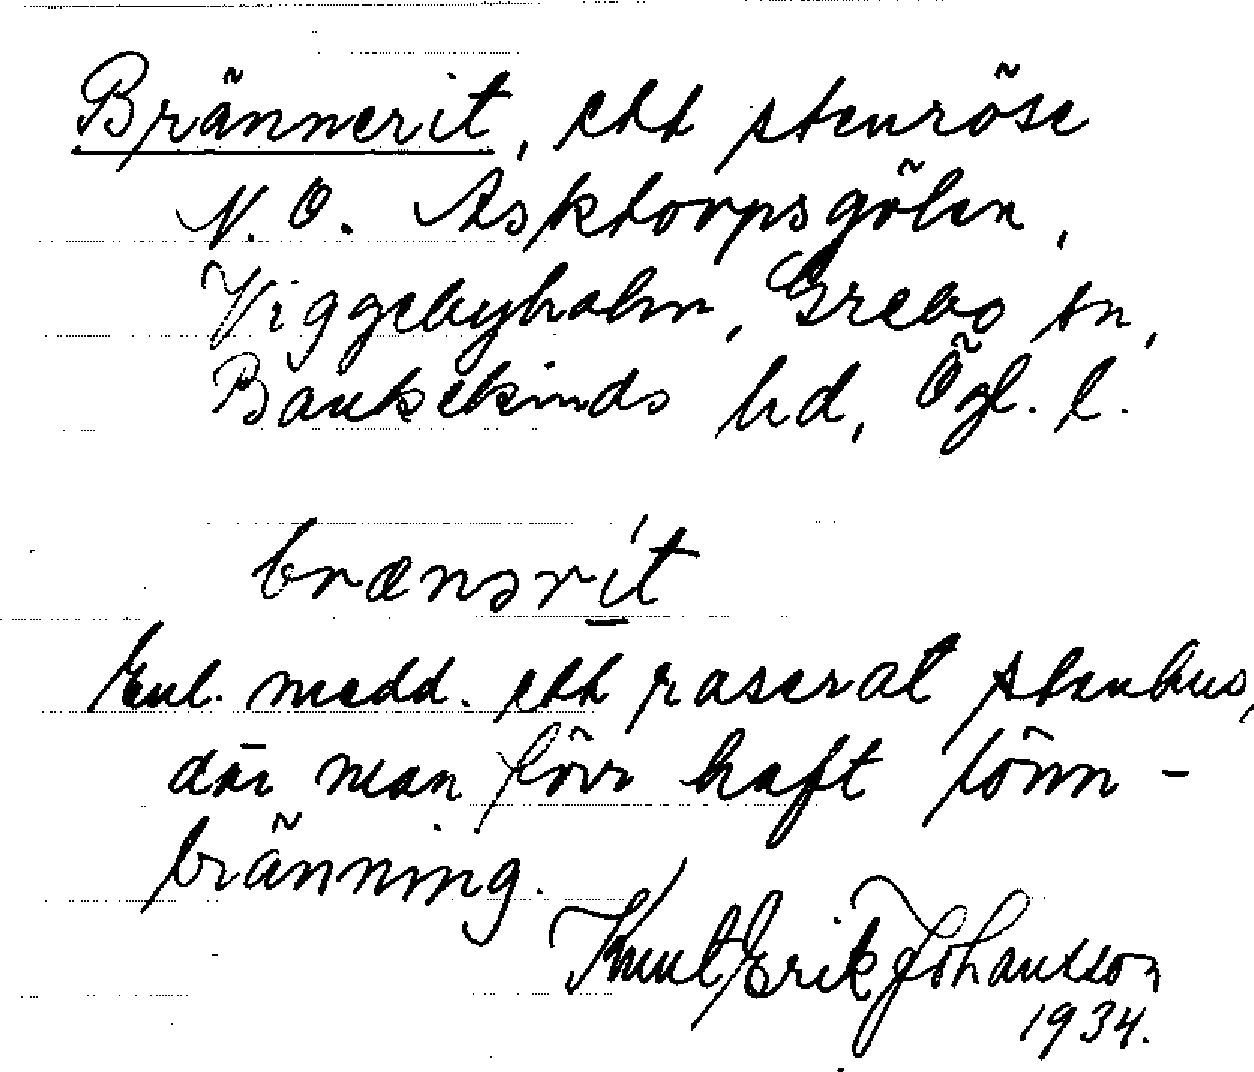 Brännerit, ett stenröse
N.O. Asktorpsgölen,
Viggebyholm, Grebo sn,
Bankekinds hd, Ögl. l.
brænərít
Enl. medd. ett raserat stenhus,
där man förr haft lönn-
bränning.
Knut Erik Johansson
1934.